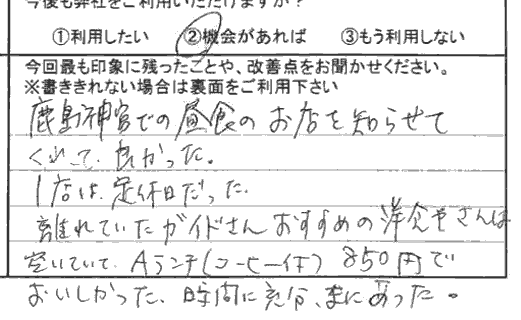 今後も弊社をご利用いただけますか？
①利用したい ②機会があれば ③もう利用しない
今回最も印象に残ったことや、改善点をお聞かせください。
※書ききれない場合は裏面をご利用下さい
鹿島神宮での昼食のお店を知らせて
くれて、良かった。
1店は、定休日だった、
離れていたガイドさんおすすめの洋食やさんは
空いていて、Aランチ(コーヒー付) 850円で
おいしかった、時間に充分、まにあった。